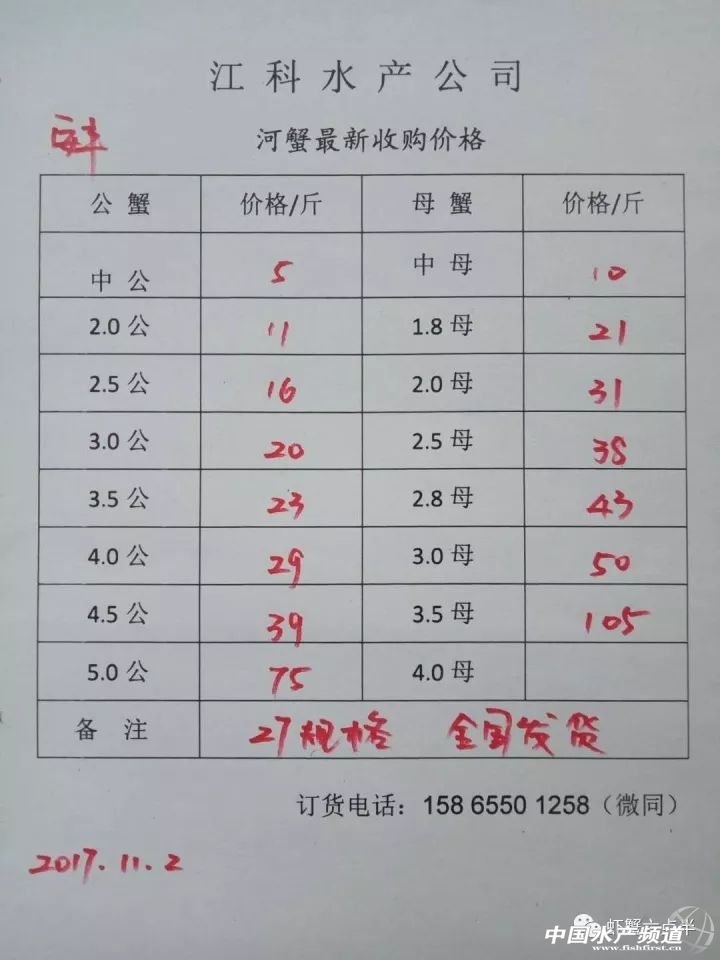 江科水产公司
河蟹最新收购价格
公蟹 价格/斤 母蟹 价格/斤
中公 5 中母 10
2.0公 11 1.8母 21
2.5公 16 2.0母 31
3.0公 20 2.5母 38
3.5公 23 2.8母 43
4.0公 29 3.0母 50
4.5公 39 3.5母 105
5.0公 75 4.0母
备注 27规格 全国发货
订货电话：158 6550 1258（微同）
2017.11.2
虾蟹六点半
中国水产频道
www.fishfirst.cn